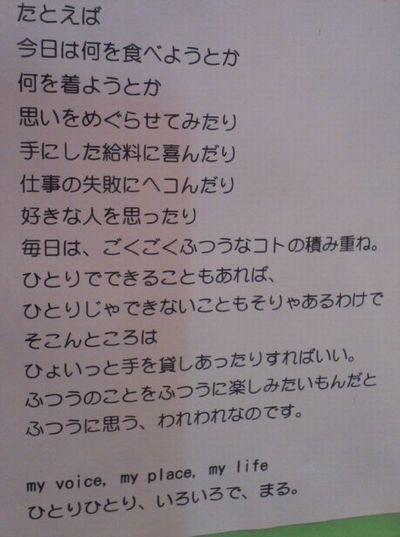 たとえば
今日は何を食べようとか
何を着ようとか
思いをめぐらせてみたり
手にした給料に喜んだり
仕事の失敗にヘコんだり
好きな人を思ったり
毎日は、ごくごくふつうなコトの積み重ね。
ひとりでできることもあれば、
ひとりじゃできないこともそりゃあるわけで
そこんところは
ひょいっと手を貸しあったりすればいい。
ふつうのことをふつうに楽しみたいもんだと
ふつうに思う、われわれなのです。
my voice, my place, my life
ひとりひとり、いろいろで、まる。